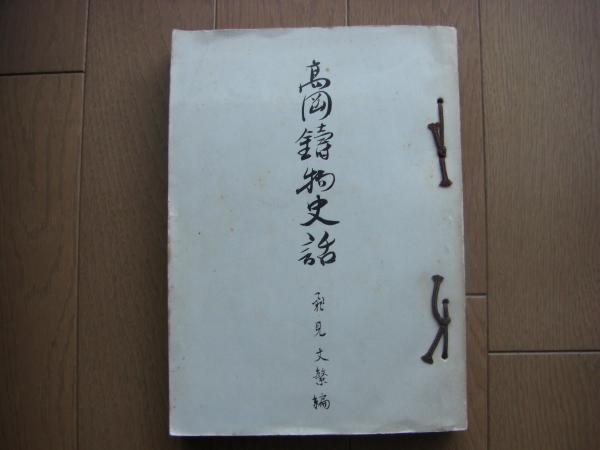 高岡鑄物史話
飛見丈繁編